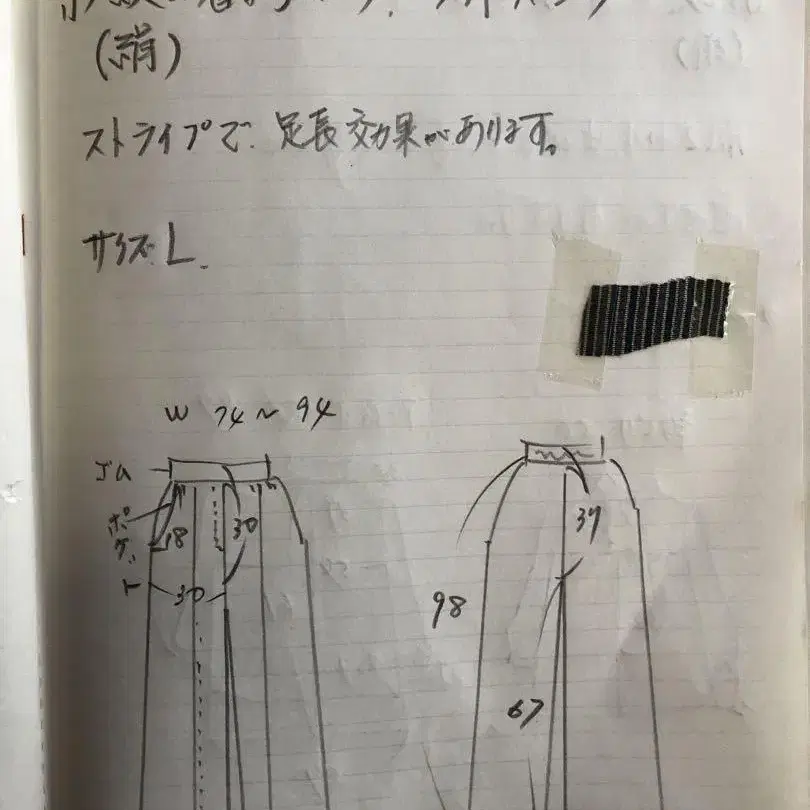 (絹)
ストライプで、足長効果があります。
サイズ L.
W 74～94
ゴム
ポケット
18
30
30
37
98
67